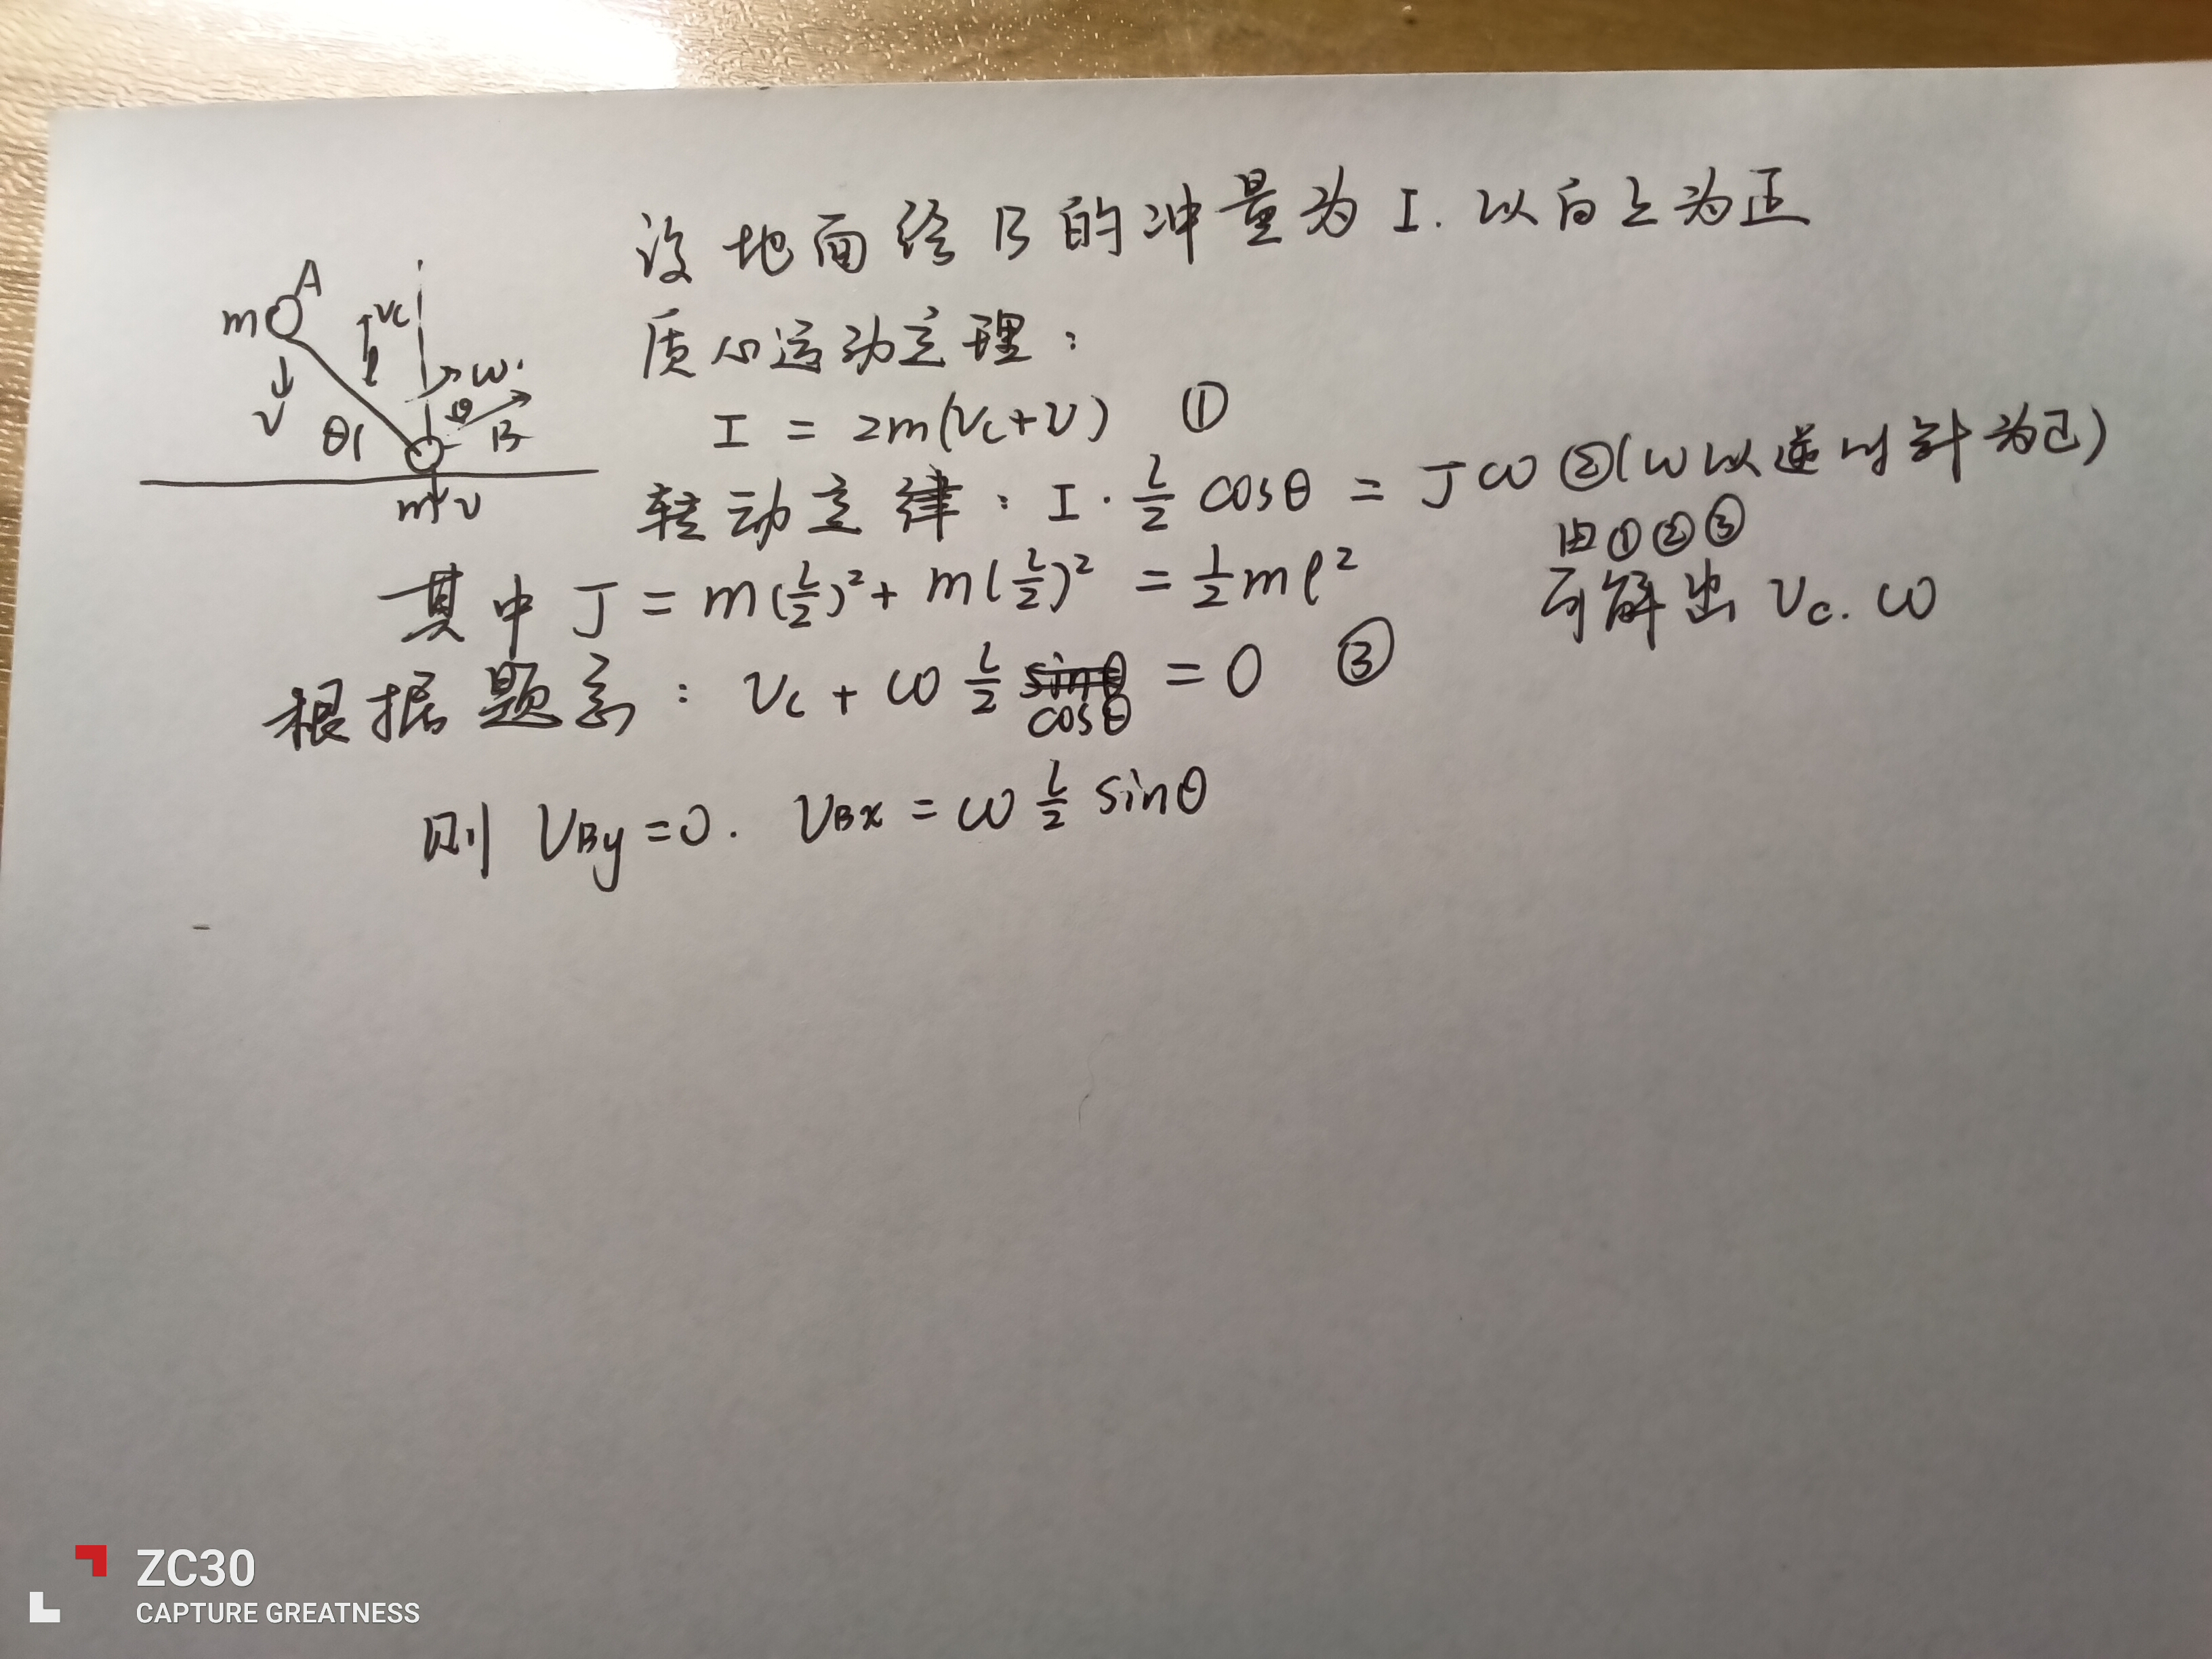 设地面给B的冲量为I.以向上为正
质心运动定理：
I = 2m(Vc+v) ①
转动定律：I·l/2 cosθ = Jω ②(ω以逆时针为正)
其中 J = m(l/2)²+ m(l/2)² = 1/2ml²
由①②③
可解出 Vc.ω
根据题意：Vc + ω l/2 cosθ = 0 ③
则 VBy=0. VBx = ω l/2 sinθ
A
m
Vc
l
ω
v
θ
θ
B
m
v
ZC30
CAPTURE GREATNESS